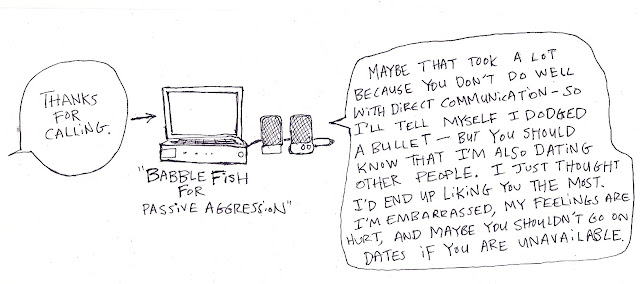 THANKS
FOR
CALLING.
"BABBLE FISH
FOR
PASSIVE AGGRESSION"
MAYBE THAT TOOK A LOT
BECAUSE YOU DON'T DO WELL
WITH DIRECT COMMUNICATION - SO
I'LL TELL MYSELF I DODGED
A BULLET - BUT YOU SHOULD
KNOW THAT I'M ALSO DATING
OTHER PEOPLE. I JUST THOUGHT
I'D END UP LIKING YOU THE MOST.
I'M EMBARRASSED, MY FEELINGS ARE
HURT, AND MAYBE YOU SHOULDN'T GO ON
DATES IF YOU ARE UNAVAILABLE.